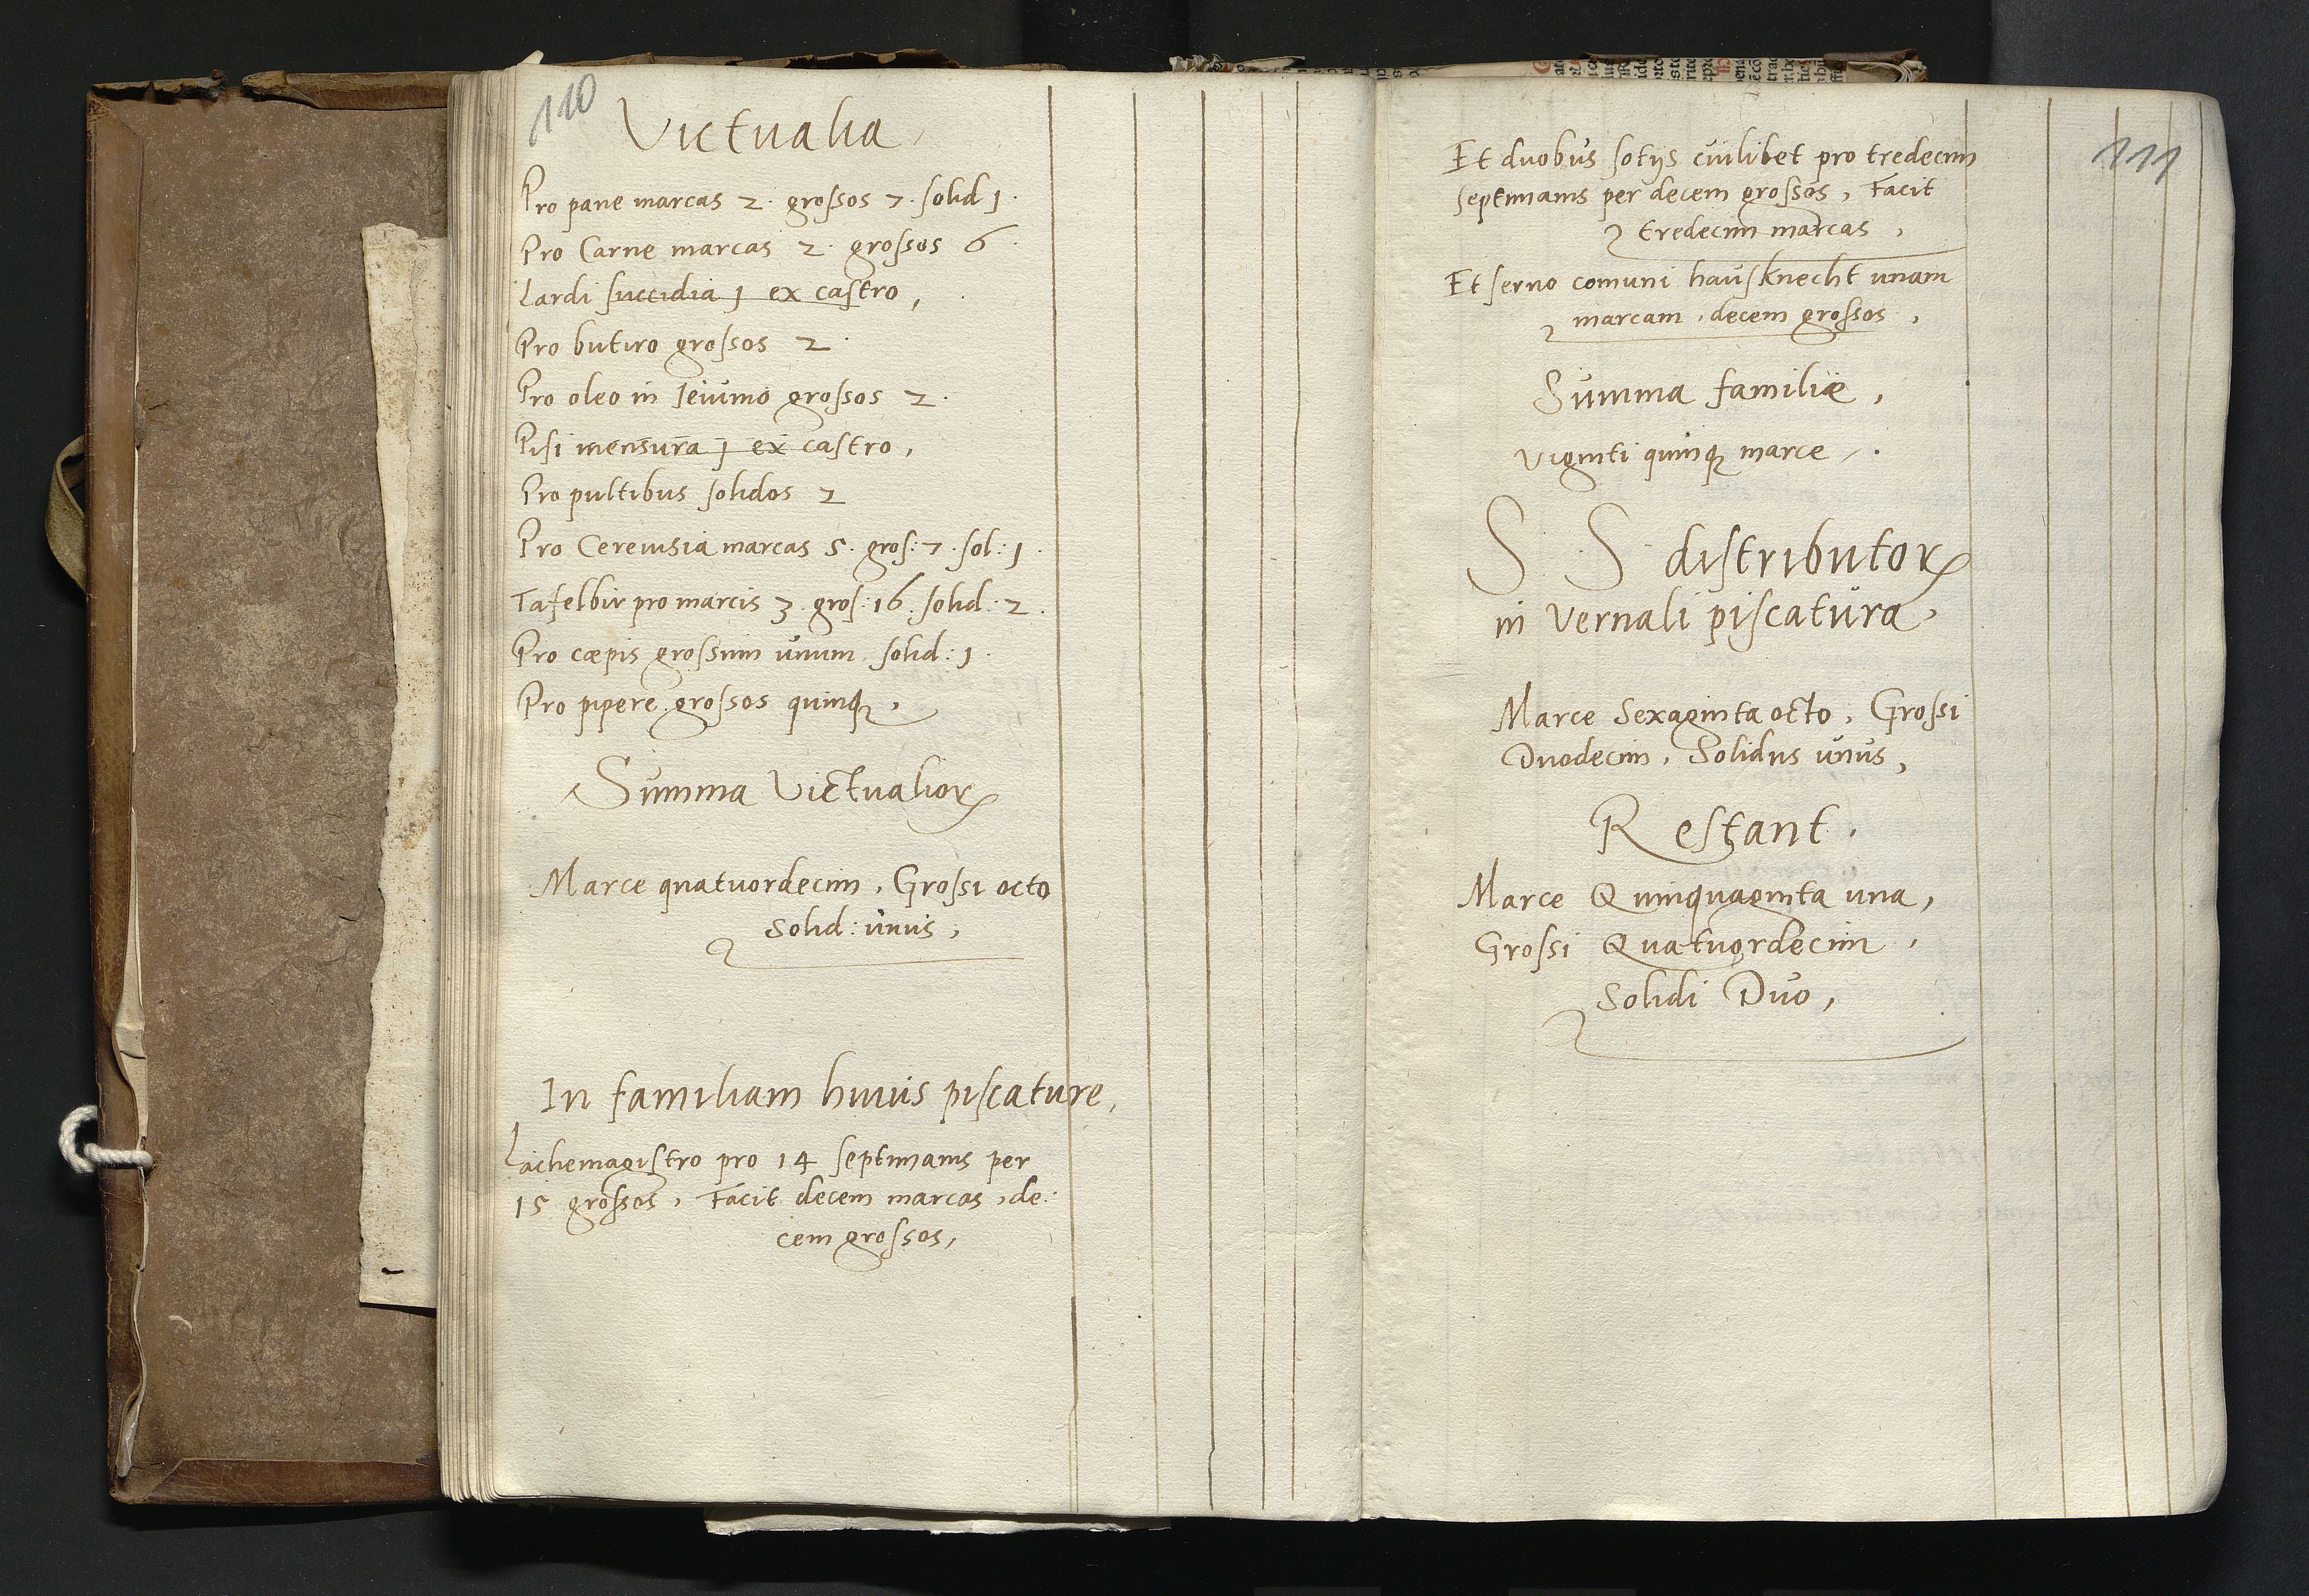 110
Victualia
Pro pane marcas 2. grossos 7. solid 1.
Pro Carne marcas 2. grossos 6.
Lardi succidia 1 ex castro,
Pro butiro grossos 2.
Pro oleo in Jeiunio grossos 2.
Pisi mensura 1 ex castro,
Pro pultibus solidos 2
Pro Cereuisia marcas 5. gros: 7. sol: 1.
Tafelbir pro marcis 3. gros: 16. solid: 2.
Pro cæpis grossum unum solid: 1.
Pro pipere grossos quinqꝫ,
Summa Victualioꝝ
Marce quatuordecim, Grossi octo
Solid: unus,
In familiam huius piscature,
Lachemagistro pro 14 septimanis per
15 grossos, Facit decem marcas, de:
cem grossos,
111
Et duobus sotijs cuilibet pro tredecim
septimanis per decem grossos, Facit
tredecim marcas,
Et seruo comuni hausknecht unam
marcam, decem grossos,
Summa familiæ,
Viginti quinqꝫ marce.
S. S distributoꝝ
in Vernali piscatura,
Marce Sexaginta octo, Grossi
Duodecim, Solidus unus,
Restant.
Marce Quinquaginta una,
Grossi Quatuordecim,
Solidi Duo,